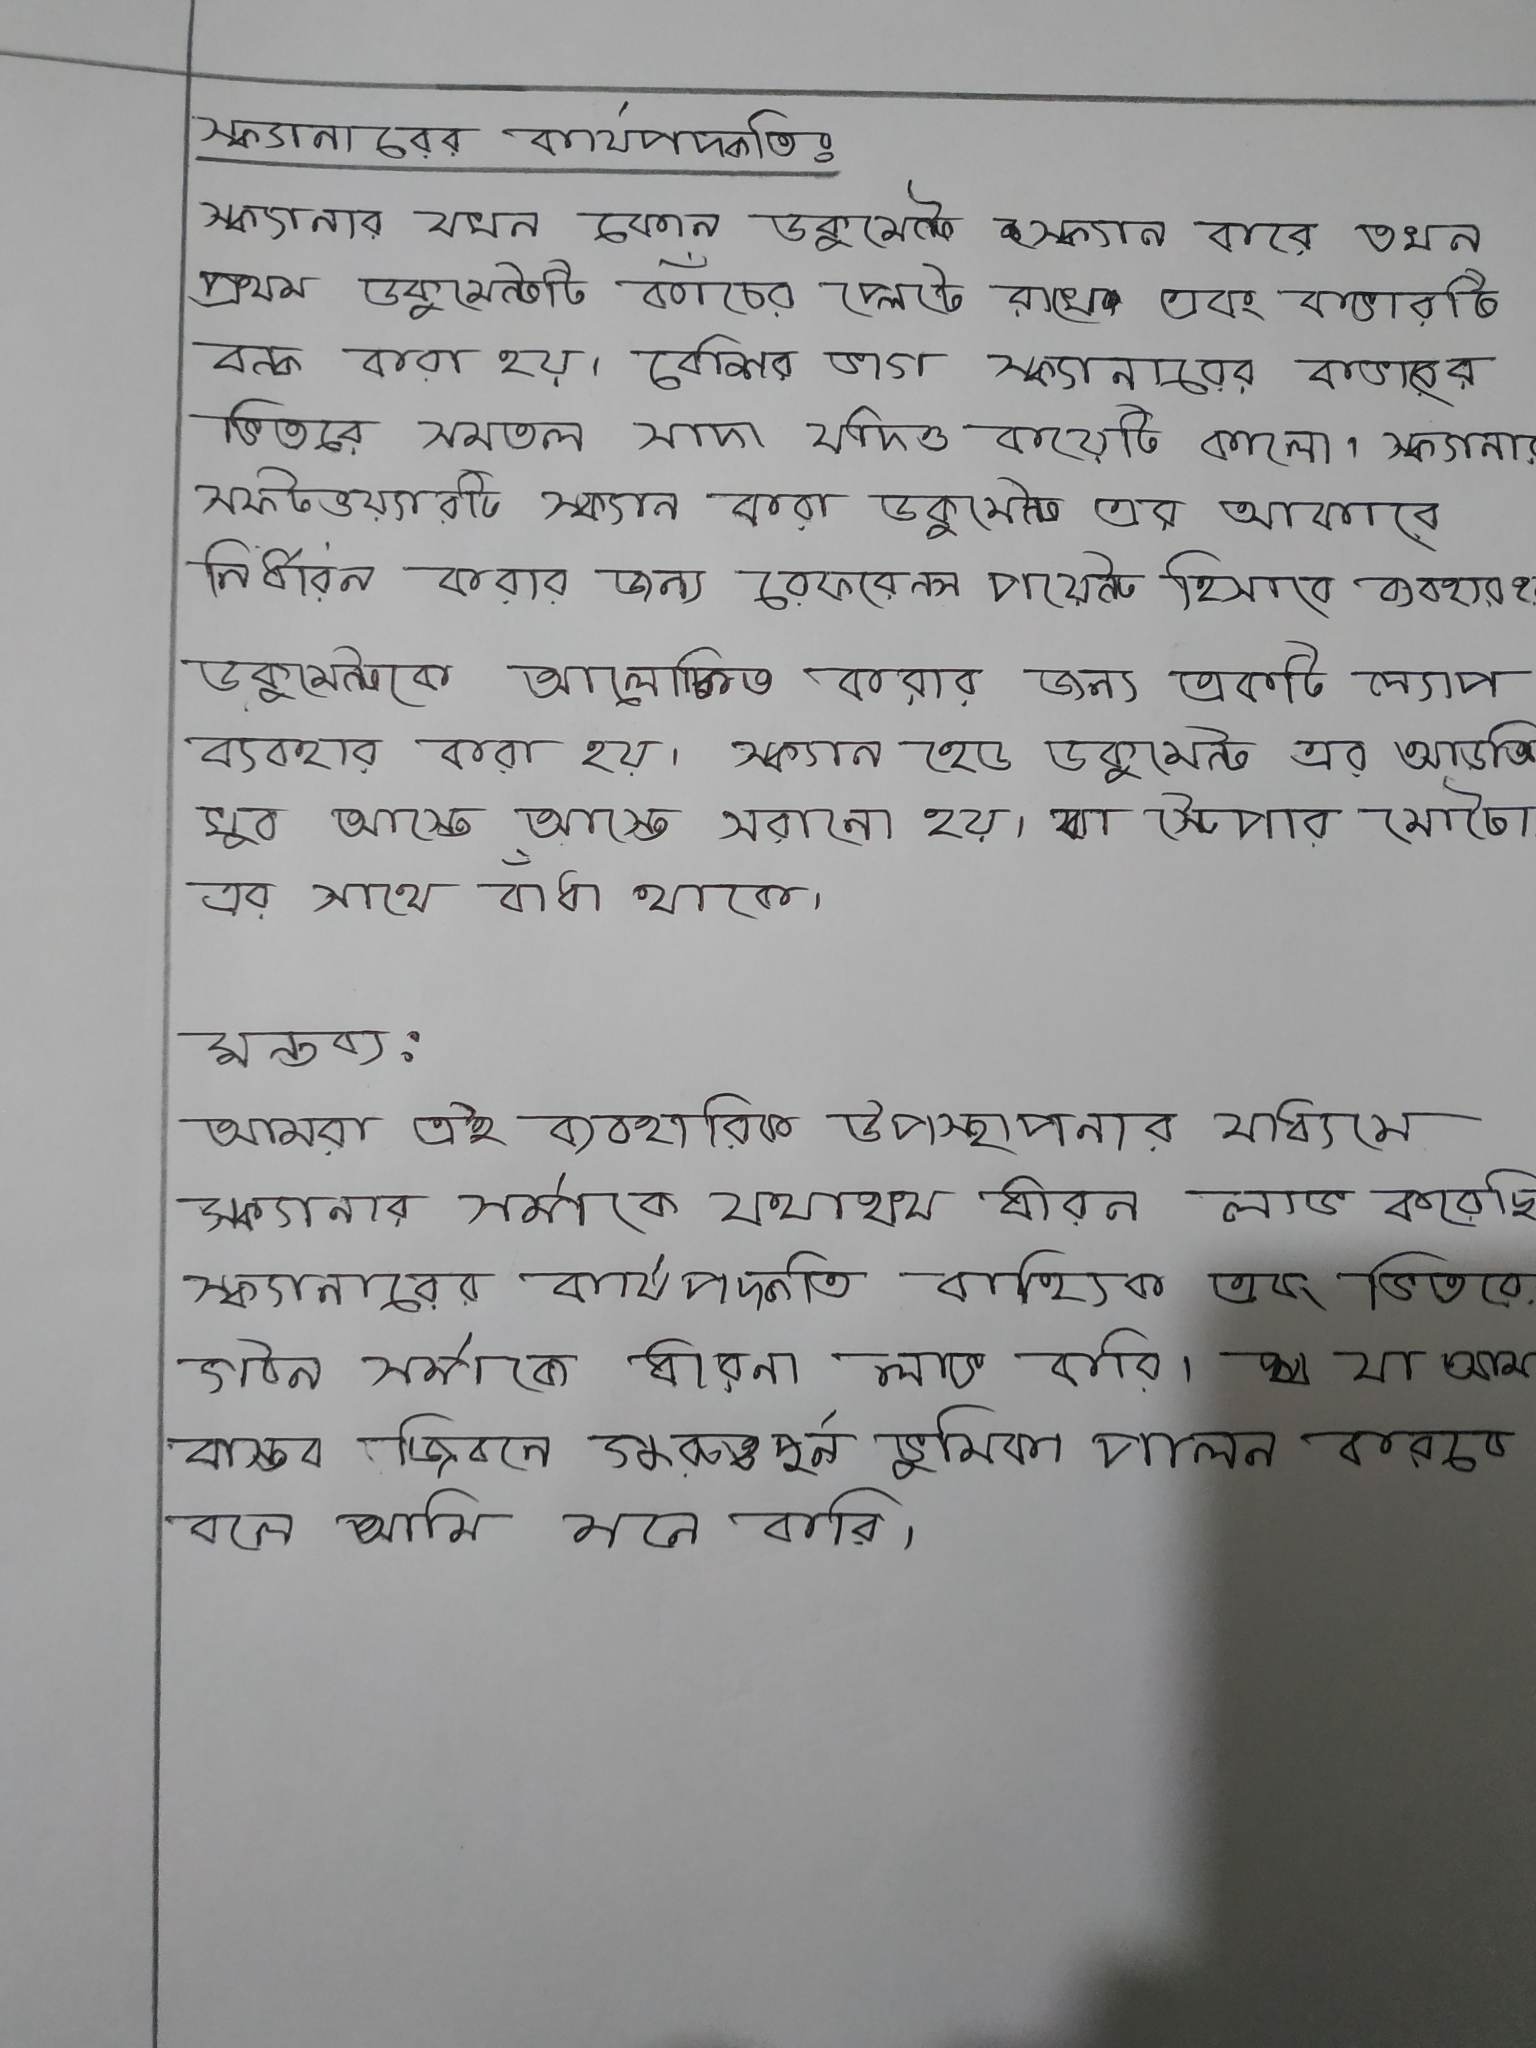 স্ক্যানারের কার্যপদ্ধতিঃ
স্ক্যানার যখন কোন ডকুমেন্ট স্ক্যান করে তখন
প্রথম ডকুমেন্টটি কাঁচের প্লেটে রাখে এবং কাভারটি
বন্ধ করা হয়। বেশির ভাগ স্ক্যানারের কাভারের
ভিতরে সমতল সাদা যদিও কয়েটি কালো। স্ক্যানার
সফটওয়্যারটি স্ক্যান করা ডকুমেন্ট এর আকারে
নির্ধারন করার জন্য রেফরেনস পয়েন্ট হিসাবে ব্যবহার
ডকুমেন্টকে আলোকিত করার জন্য একটি ল্যাপ
ব্যবহার করা হয়। স্ক্যান হেড ডকুমেন্ট এর আড়তি
খুব আস্তে আস্তে সরানো হয়। যা স্টেপার মোটো
এর সাথে বাঁধা থাকে।
মন্তব্য:
আমরা এই ব্যবহারিক উপস্থাপনার মাধ্যিমে
স্ক্যানার সর্ম্পকে যথাযথ ধারন লাভ করেছি
স্ক্যানারের কার্যপদ্দতি বাহ্যিক এবং ভিতরে
গঠন সর্ম্পকে ধারনা লাভ করি। যা আম
বাস্তব জিবনে গুরুত্বপূর্ন ভুমিকা পালন করবে
বলে আমি মনে করি।